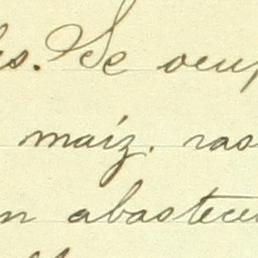 s. Se ocup
maíz. ras
n abastece